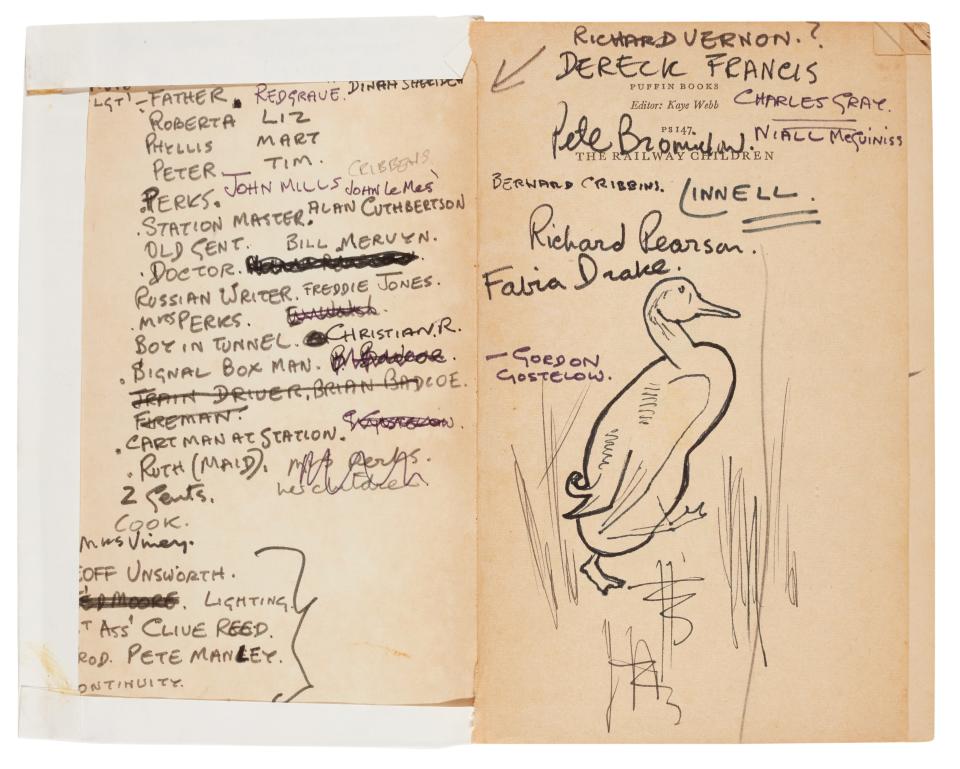 DINAH SHERIDEN
LGT! - FATHER. REDGRAVE.
ROBERTA LIZ
PHYLLIS MART
PETER TIM.
CRIBBENS
PERKS. JOHN MILLS JOHN Le Mes'
STATION MASTER. ALAN CUTHBERTSON
OLD GENT. BILL MERVYN.
DOCTOR.
RUSSIAN WRITER. FREDDIE JONES.
MRS PERKS.
BOY IN TUNNEL. CHRISTIAN. R.
SIGNAL BOX MAN. B. Badcoe.
TRAIN DRIVER, BRIAN BADCOE.
FIREMAN.
CART MAN AT STATION. Gostelow.
RUTH (MAID). Mrs Perks.
2 Gents. her children
COOK.
Mrs Viney.
EOFF UNSWORTH.
ED MOORE. LIGHTING.
T ASS' CLIVE REED.
ROD. PETE MANLEY.
ONTINUITY.
RICHARD VERNON.?
DERECK FRANCIS
PUFFIN BOOKS
Editor: Kaye Webb
CHARLES GRAY.
PS147.
Pete Bromilow.
NIALL McGUINISS
THE RAILWAY CHILDREN
BERWARD CRIBBINS.
LINNELL.
Richard Pearson.
Fabia Drake.
- GORDON
GOSTELOW.